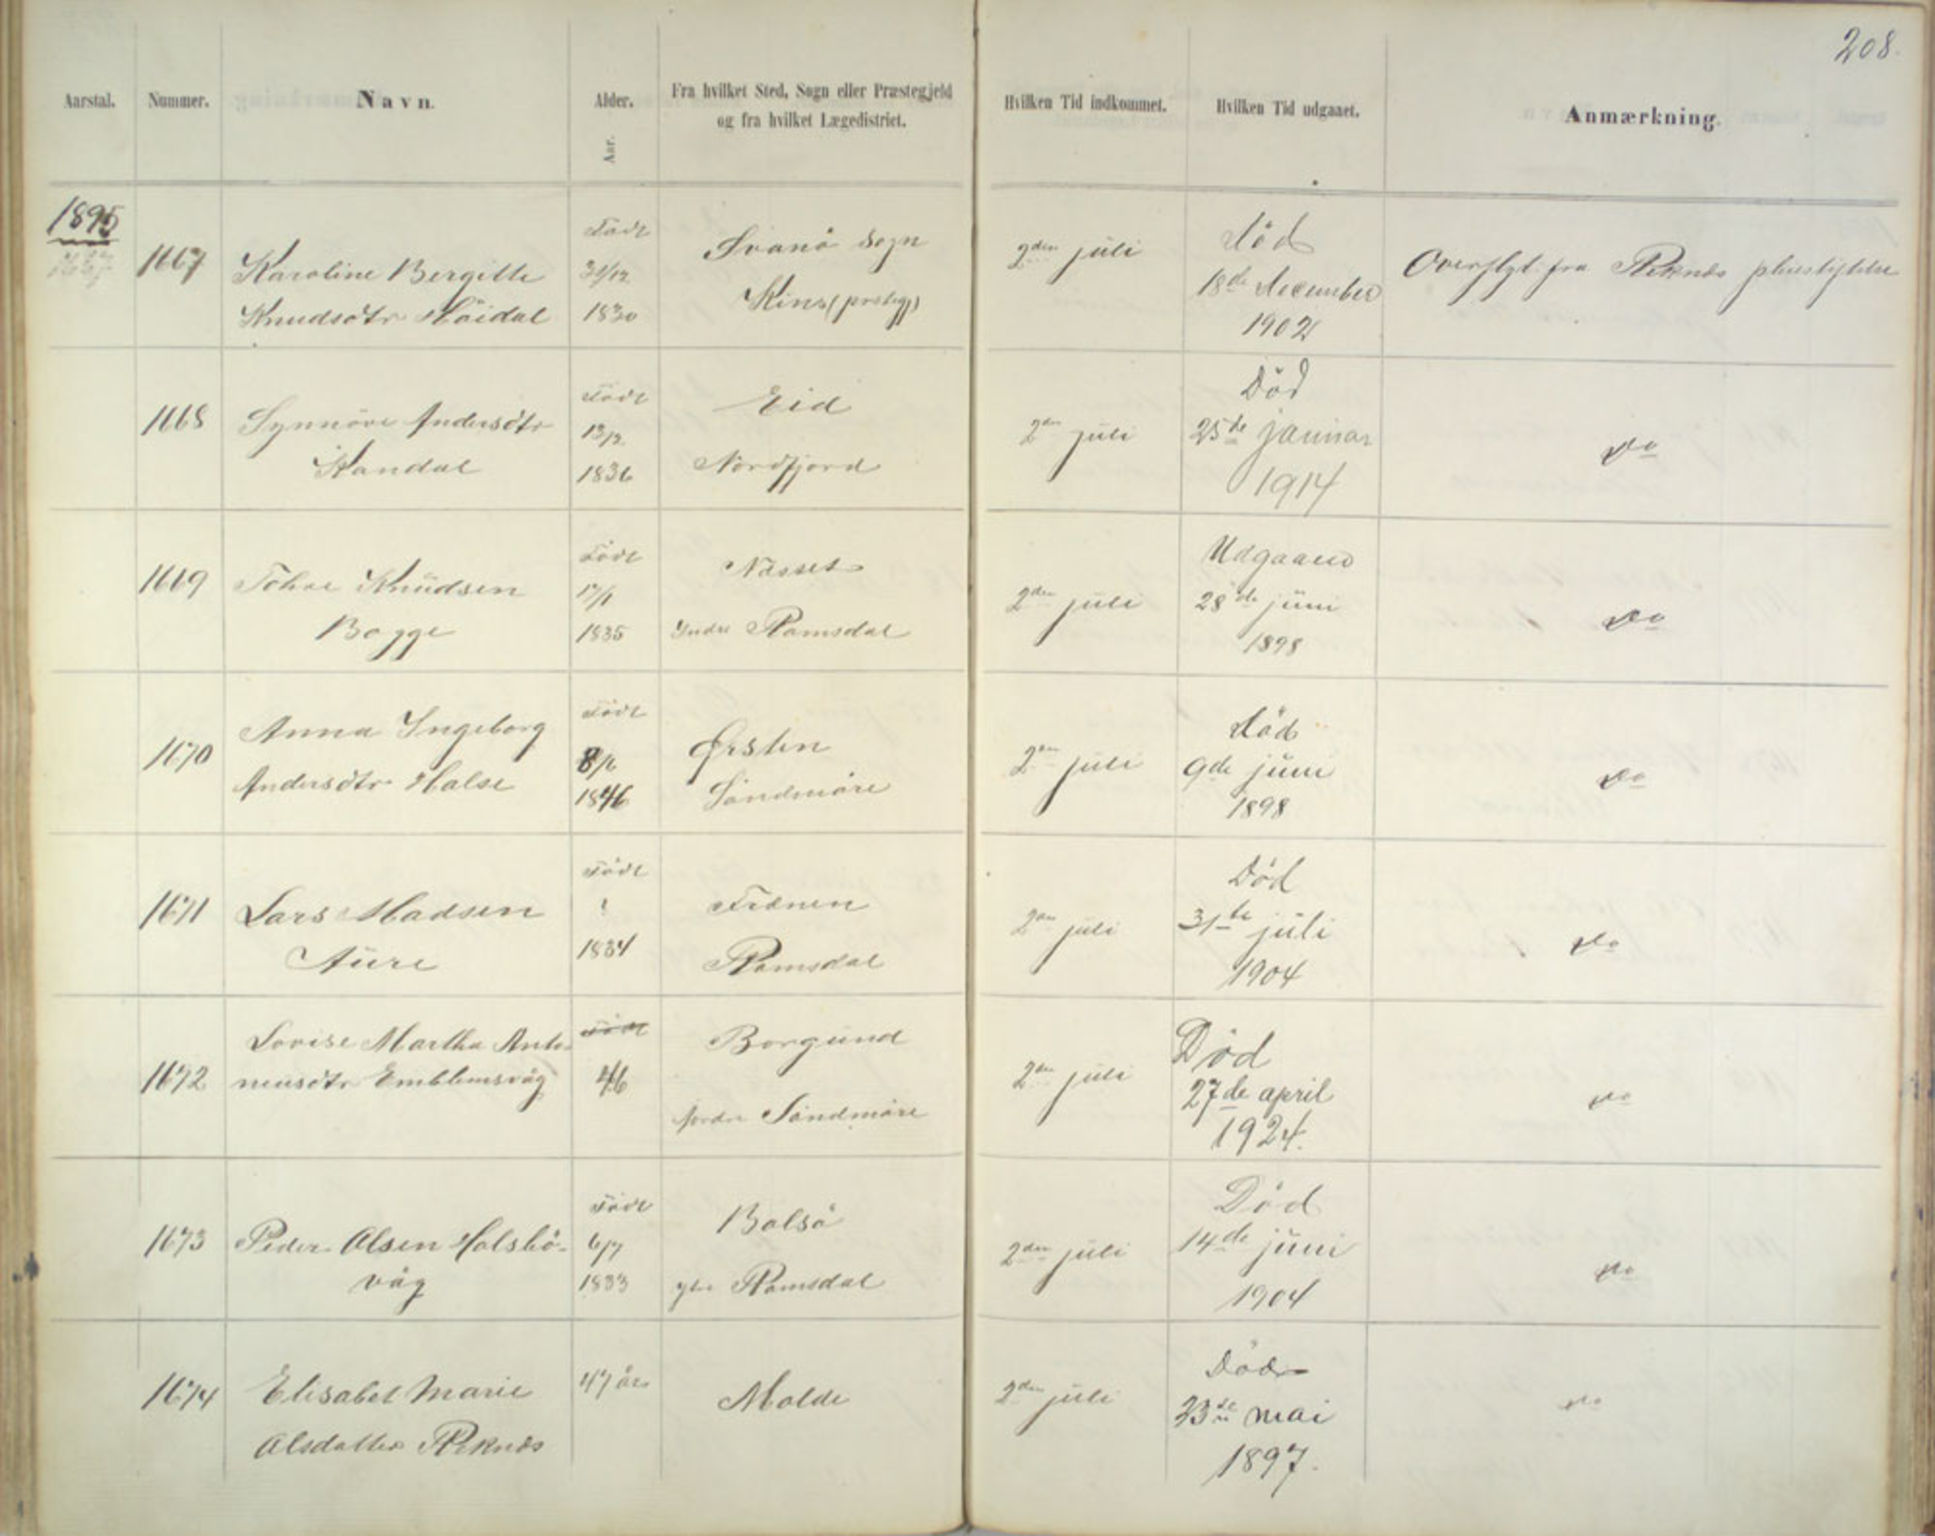 208.
Aarstal. Nummer. Navn. Alder. Aar. Fra hvilket Sted, Sogn eller Præstegjeld
og fra hvilket Lægedistrict. Hvilken Tid indkommet. Hvilken Tid udgaaet. Anmærkning.
1895
1667 Karoline Bergitte
Knudsdtr Höidal
Födt
31/12
1830
Svanö Sogn
Kins (prstegj)
2den juli
död
18de december
1902
Overflyt. fra Reknæs pleiestiftelse
1668 Synnöve Andersdtr
Kandal
Födt
13/2
1836
Eid
Nordfjord
2den juli
Död
25de januar
1914
do
1669 Tohre Knudsen
Bogge
Födt
17/1
1835
Næsset
Indre Romsdal
2den juli
Udgaaed
28de juni
1898
do
1670 Anna Ingeborg
Andersdtr Halse
Födt
8/6
1846
Ørsten
Söndmöre
2den juli
död
9de juni
1898
do
1671 Lars Madsen
Aure
Födt
?
1834
Frænen
Romsdal
2den juli
Död
31te juli
1904
do
1672 Lovise Martha Anto-
neusdtr Emblemsvåg
Födt
46
Borgund
Nordre Söndmöre
2den juli
Död
27de april
1924.
do
1673 Peder Olsen Holsbö-
våg
Födt
6/7
1833
Bolsö
ytre Romsdal
2den juli
Död
14de juni
1904
do
1674 Elisabet Marie
Olsdatter Reknæs
47 år
Molde
2den juli
Död
23de mai
1897.
do